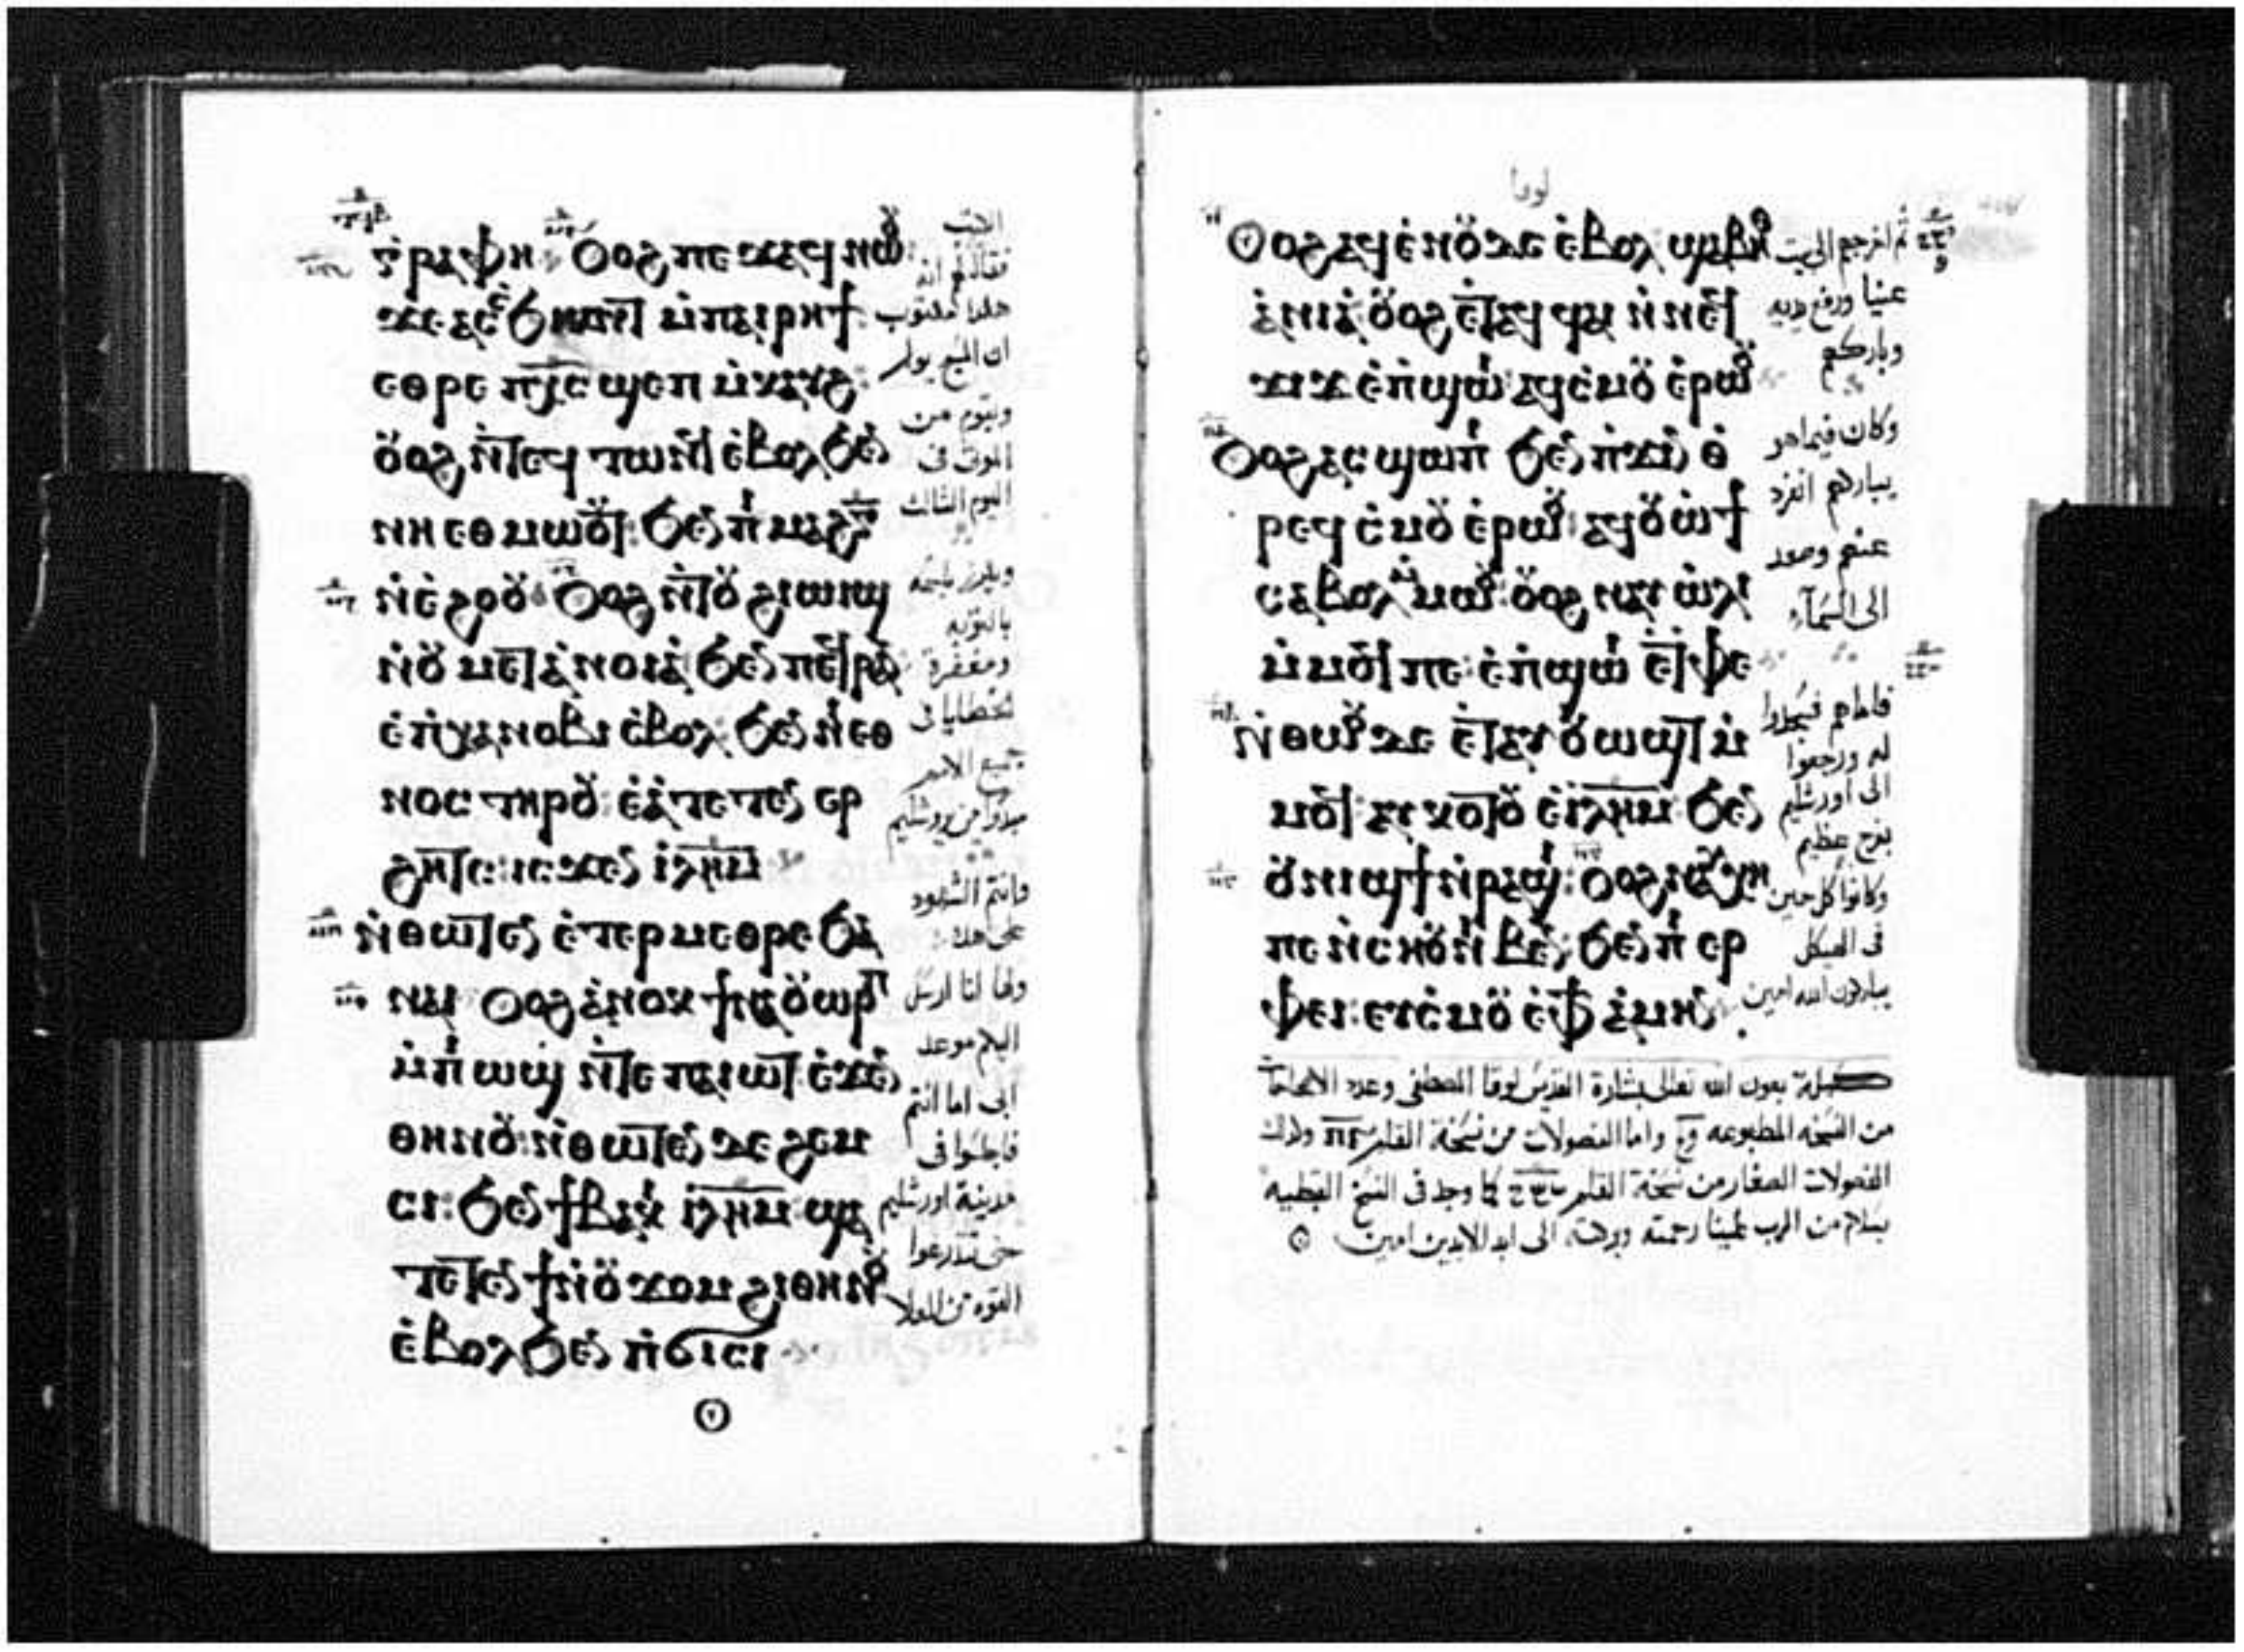 ⲅⲣⲁⲫⲏ Ⲟⲩⲟϩ ⲡⲉϫⲁϥ ⲛⲱⲟⲩ
ϫⲉ ⲁⲥⲥϧⲏⲟⲩⲧ ⲙ̀ⲡⲁⲓⲣⲏϯ
ⲉⲑⲣⲉ ⲡⲭ̅ⲥ̅ ϣⲉⲡ ⲙ̀ⲕⲁⲩϩ
ⲟⲩⲟϩ ⲛ̀ⲧⲉϥ ⲧⲱⲛϥ ⲉ̀ⲃⲟⲗ ϧⲉⲛ
ⲛⲏ ⲉⲑⲙⲱⲟⲩⲧ ϧⲉⲛ ⲡⲓⲙⲁϩ ⲅ̅
ⲛ̀ⲉ̀ϩⲟⲟⲩ Ⲟⲩⲟϩ ⲛ̀ⲧⲟⲩ ϩⲓⲱⲓϣ
ⲛ̀ⲟⲩ ⲙⲉⲧⲁ̀ⲛⲟⲓⲁ̀ ϧⲉⲛ ⲡⲉϥⲣⲁⲛ
ⲉ̀ⲡⲭⲁ ⲛⲟⲃⲓ ⲉ̀ⲃⲟⲗ ϧⲉⲛ ⲛⲓⲉⲑ
ⲛⲟⲥ ⲧⲏⲣⲟⲩ ⲉ̀ⲁ̀ⲧⲉⲧⲉⲛ ⲉⲣ
ϩⲏⲧⲥ ⲓⲥϫⲉⲛ ⲓ̅ⲗ̅ⲏ̅ⲙ̅
ⲛ̀ⲑⲱⲧⲉⲛ ⲉ̀ⲧⲉⲣⲙⲉⲑⲣⲉ ϧⲁ
ⲛⲁⲓ Ⲟⲩⲟϩ ⲁ̀ⲛⲟⲕ ϯⲛⲁⲟⲩⲱⲣⲡ
ⲙ̀ⲡⲓⲱϣ ⲛ̀ⲧⲉ ⲡⲁⲓⲱⲧ ⲉ̀ϫⲉⲛ
ⲑⲏⲛⲟⲩ ⲛ̀ⲑⲱⲧⲉⲛ ⲇⲉ ϩⲉⲙ
ⲥⲓ ϧⲉⲛ ϯⲃⲁⲕⲓ ⲓ̅ⲗ̅ⲏ̅ⲙ̅ ϣⲁ
ⲧⲉⲧⲉⲛ ϯ ⲛ̀ⲟⲩ ϫⲟⲙ ϩⲓⲑⲏⲛⲟⲩ
ⲉ̀ⲃⲟⲗ ϧⲉⲛ ⲡ̀ϭⲓⲥⲓ
فقال لهم انه
هكذا مكتوب
ويقوم من
الموتى فى
اليوم الثالث
بالتوبه
ومغفرة
وانتم الشهود
وها انا ارسل
اليكم موعد
ابى اما انتم
فاجلسوا فى
مدينة اورشليم
حتى تتدرعوا
القوه من العلا
لوقا
Ⲟⲩⲟϩ ⲁϥⲉ̀ⲛⲟⲩ ⲇⲉ ⲉ̀ⲃⲟⲗ ϣⲁ ⲃⲏⲑ
ⲁ̀ⲛⲓⲁ̀ ⲟⲩⲟϩ ⲉ̀ⲧⲁϥ ϥⲁⲓ ⲛ̀ⲛⲉϥ
ϫⲓϫ ⲉ̀ⲡϣⲱⲓ ⲁϥⲥ̀ⲙⲟⲩ ⲉ̀ⲣⲱⲟⲩ
Ⲟⲩⲟϩ ⲁⲥϣⲱⲡⲓ ϧⲉⲛ ⲡ̀ϫⲓⲛ ⲑ̀
ⲣⲉϥ ⲥ̀ⲙⲟⲩ ⲉ̀ⲣⲱⲟⲩ ⲁϥⲟⲩⲱ̀ϯ
ⲥⲁⲃⲟⲗ ⲙ̀ⲙⲱⲟⲩ ⲟⲩⲟϩ ⲛⲁⲩ ⲱ̀ⲗⲓ
ⲙ̀ⲙⲟϥ ⲡⲉ ⲉ̀ⲡϣⲱⲓ ⲉ̀ⲧⲫⲉ
Ⲛ̀ⲑⲱⲟⲩ ⲇⲉ ⲉ̀ⲧⲁⲩ ⲟⲩⲱϣⲧ ⲙ̀
ⲙⲟϥ ⲁⲩⲕⲟⲧⲟⲩ ⲉ̀ⲓ̅ⲗ̅ⲏ̅ⲙ̅ ϧⲉⲛ
ⲟⲩⲛⲓϣϯ ⲛ̀ⲣⲁϣⲓ Ⲟⲩⲟϩ ⲛⲁⲩⲭⲏ
ⲡⲉ ⲛ̀ⲥⲏⲟⲩ ⲛⲓⲃⲉⲛ ϧⲉⲛ ⲡⲓⲉⲣ
ⲫⲉⲓ ⲉⲩⲥ̀ⲙⲟⲩ ⲉ̀ⲫϯ ⲁ̀ⲙⲏⲛ
ثم اخرجهم الى بيت
عنيا ورفع يديه
وباركهم
وكان فيما هو
يباركهم انفرد
عنهم وصعد
الى السماء
فاما هم فسجدوا
له ورجعوا
الى اورشليم
بفرح عظيم
وكانوا كل حين
فى الهيكل
يباركون الله امين
بعون الله تعالى بشارة القديس لوقا
من النسخه المطبوعه
الفصولات الصغار من نسخة القلم كما وجد فى النسخ القبطيه
بسلام من الرب علينا رحمته وبركته الى ابد الابدين امين